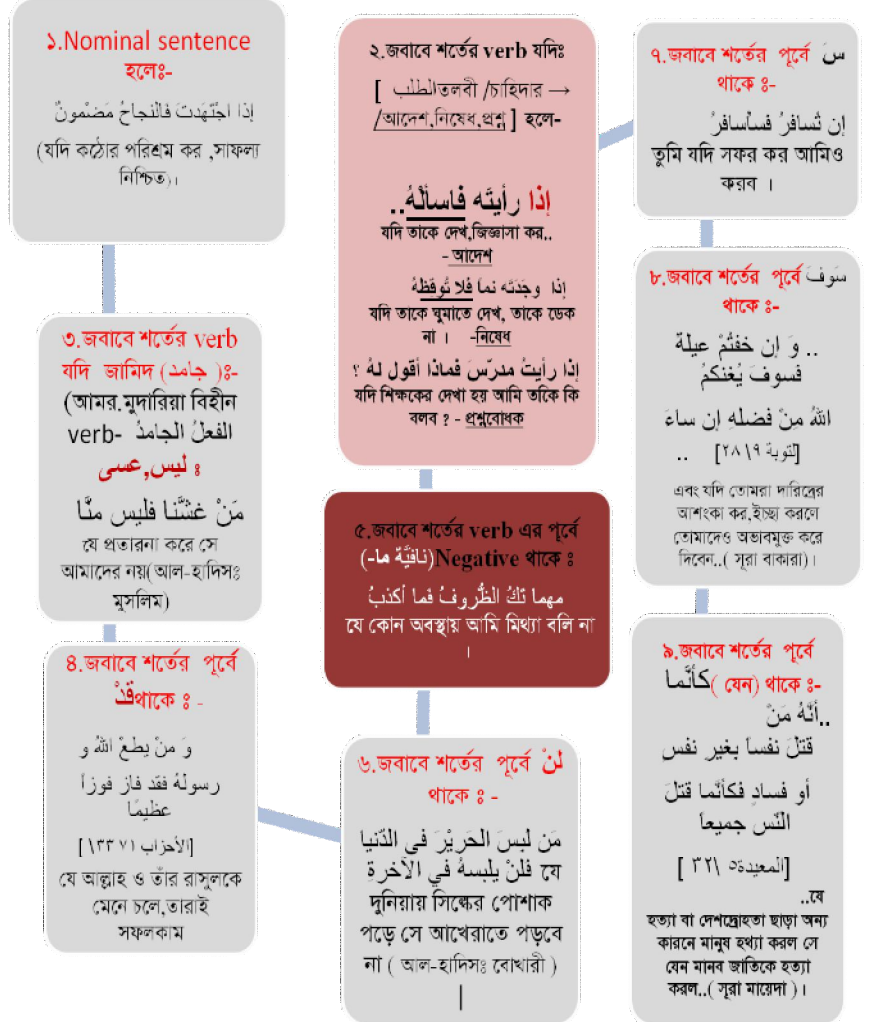 ১.Nominal sentence
হলেঃ-
إذا اجتَهَدتَ فالنجاحُ مَضْمونٌ
(যদি কঠোর পরিশ্রম কর ,সাফল্য
নিশ্চিত)।
২.জবাবে শর্তের verb যদিঃ
[ الطلبতলবী /চাহিদার →
/আদেশ,নিষেধ,প্রশ্ন ] হলে-
إذا رأيتَه فاسألْهُ..
যদি তাকে দেখ,জিজ্ঞাসা কর..
- আদেশ
إذا وجَدَته نما فلا تُوقِظهُ
যদি তাকে ঘুমাতে দেখ, তাকে ডেক
না । -নিষেধ
إذا رأيتُ مدرّسَ فماذا أقول لهُ ؟
যদি শিক্ষকের দেখা হয় আমি তকি কি
বলব ? - প্রশ্নবোধক
৩.জবাবে শর্তের verb
যদি জামিদ (جامد )ঃ-
(আমর.মুদারিয়া বিহীন
verb- الفعلُ الجامدُ
ঃ ليس,عسى
مَنْ غشَّنا فليس منَّا
যে প্রতারনা করে সে
আমাদের নয়(আল-হাদিসঃ
মুসলিম)
৪.জবাবে শর্তের পূর্বে
قدْথাকে ঃ -
وَ منْ يطعْ اللهُ و
رسولهُ فقد فاز فوزاً
عظيمًا
[الأحزاب ٧١ ١٣٣]
যে আল্লাহ ও তাঁর রাসুলকে
মেনে চলে,তারাই
সফলকাম
৫.জবাবে শর্তের verb এর পূর্বে
(نافيَّة ما-)Negative থাকে ঃ
مهما تكُ الظُّروفُ فما أكذبُ
যে কোন অবস্থায় আমি মিথ্যা বলি না
।
৬.জবাবে শর্তের পূর্বে لنْ
থাকে ঃ -
مَن لبسَ الحَريْرَ في الدّنيا
فلنْ يلبسهُ في الآخرةِ যে
দুনিয়ায় সিল্কের পোশাক
পড়ে সে আখেরাতে পড়বে
না ( আল-হাদিসঃ বোখারী )
|
৭.জবাবে শর্তের পূর্বে سَ
থাকে ঃ-
إن تُسافرُ فسأسافرُ
তুমি যদি সফর কর আমিও
করব ।
৮.জবাবে শর্তের পূর্বে سَوفَ
থাকে ঃ-
.. وَ إن خفتُمْ عيلة
فسوفَ يُغنكمُ
اللهُ مِنْ فضلهِ إن ساءَ
.. [لتوبة ٩\٢٨]
এবং যদি তোমরা দারিদ্রের
আশংকা কর,ইচ্ছা করলে
তোমাদেও অভাবমুক্ত করে
দিবেন..( সূরা বাকারা)।
৯.জবাবে শর্তের পূর্বে
كأنَّما( যেন) থাকে ঃ-
..أنَّهُ مَنْ
قتلَ نفساً بغير نفس
أو فسادٍ فكأنَّما قتلَ
النّس جميعاً
[المعيدة٥ \٣٢ ]
..যে
হত্যা বা দেশদ্রোহতা ছাড়া অন্য
কারনে মানুষ হথ্যা করল সে
যেন মানব জাতিকে হত্যা
করল..( সূরা মায়েদা ) ।